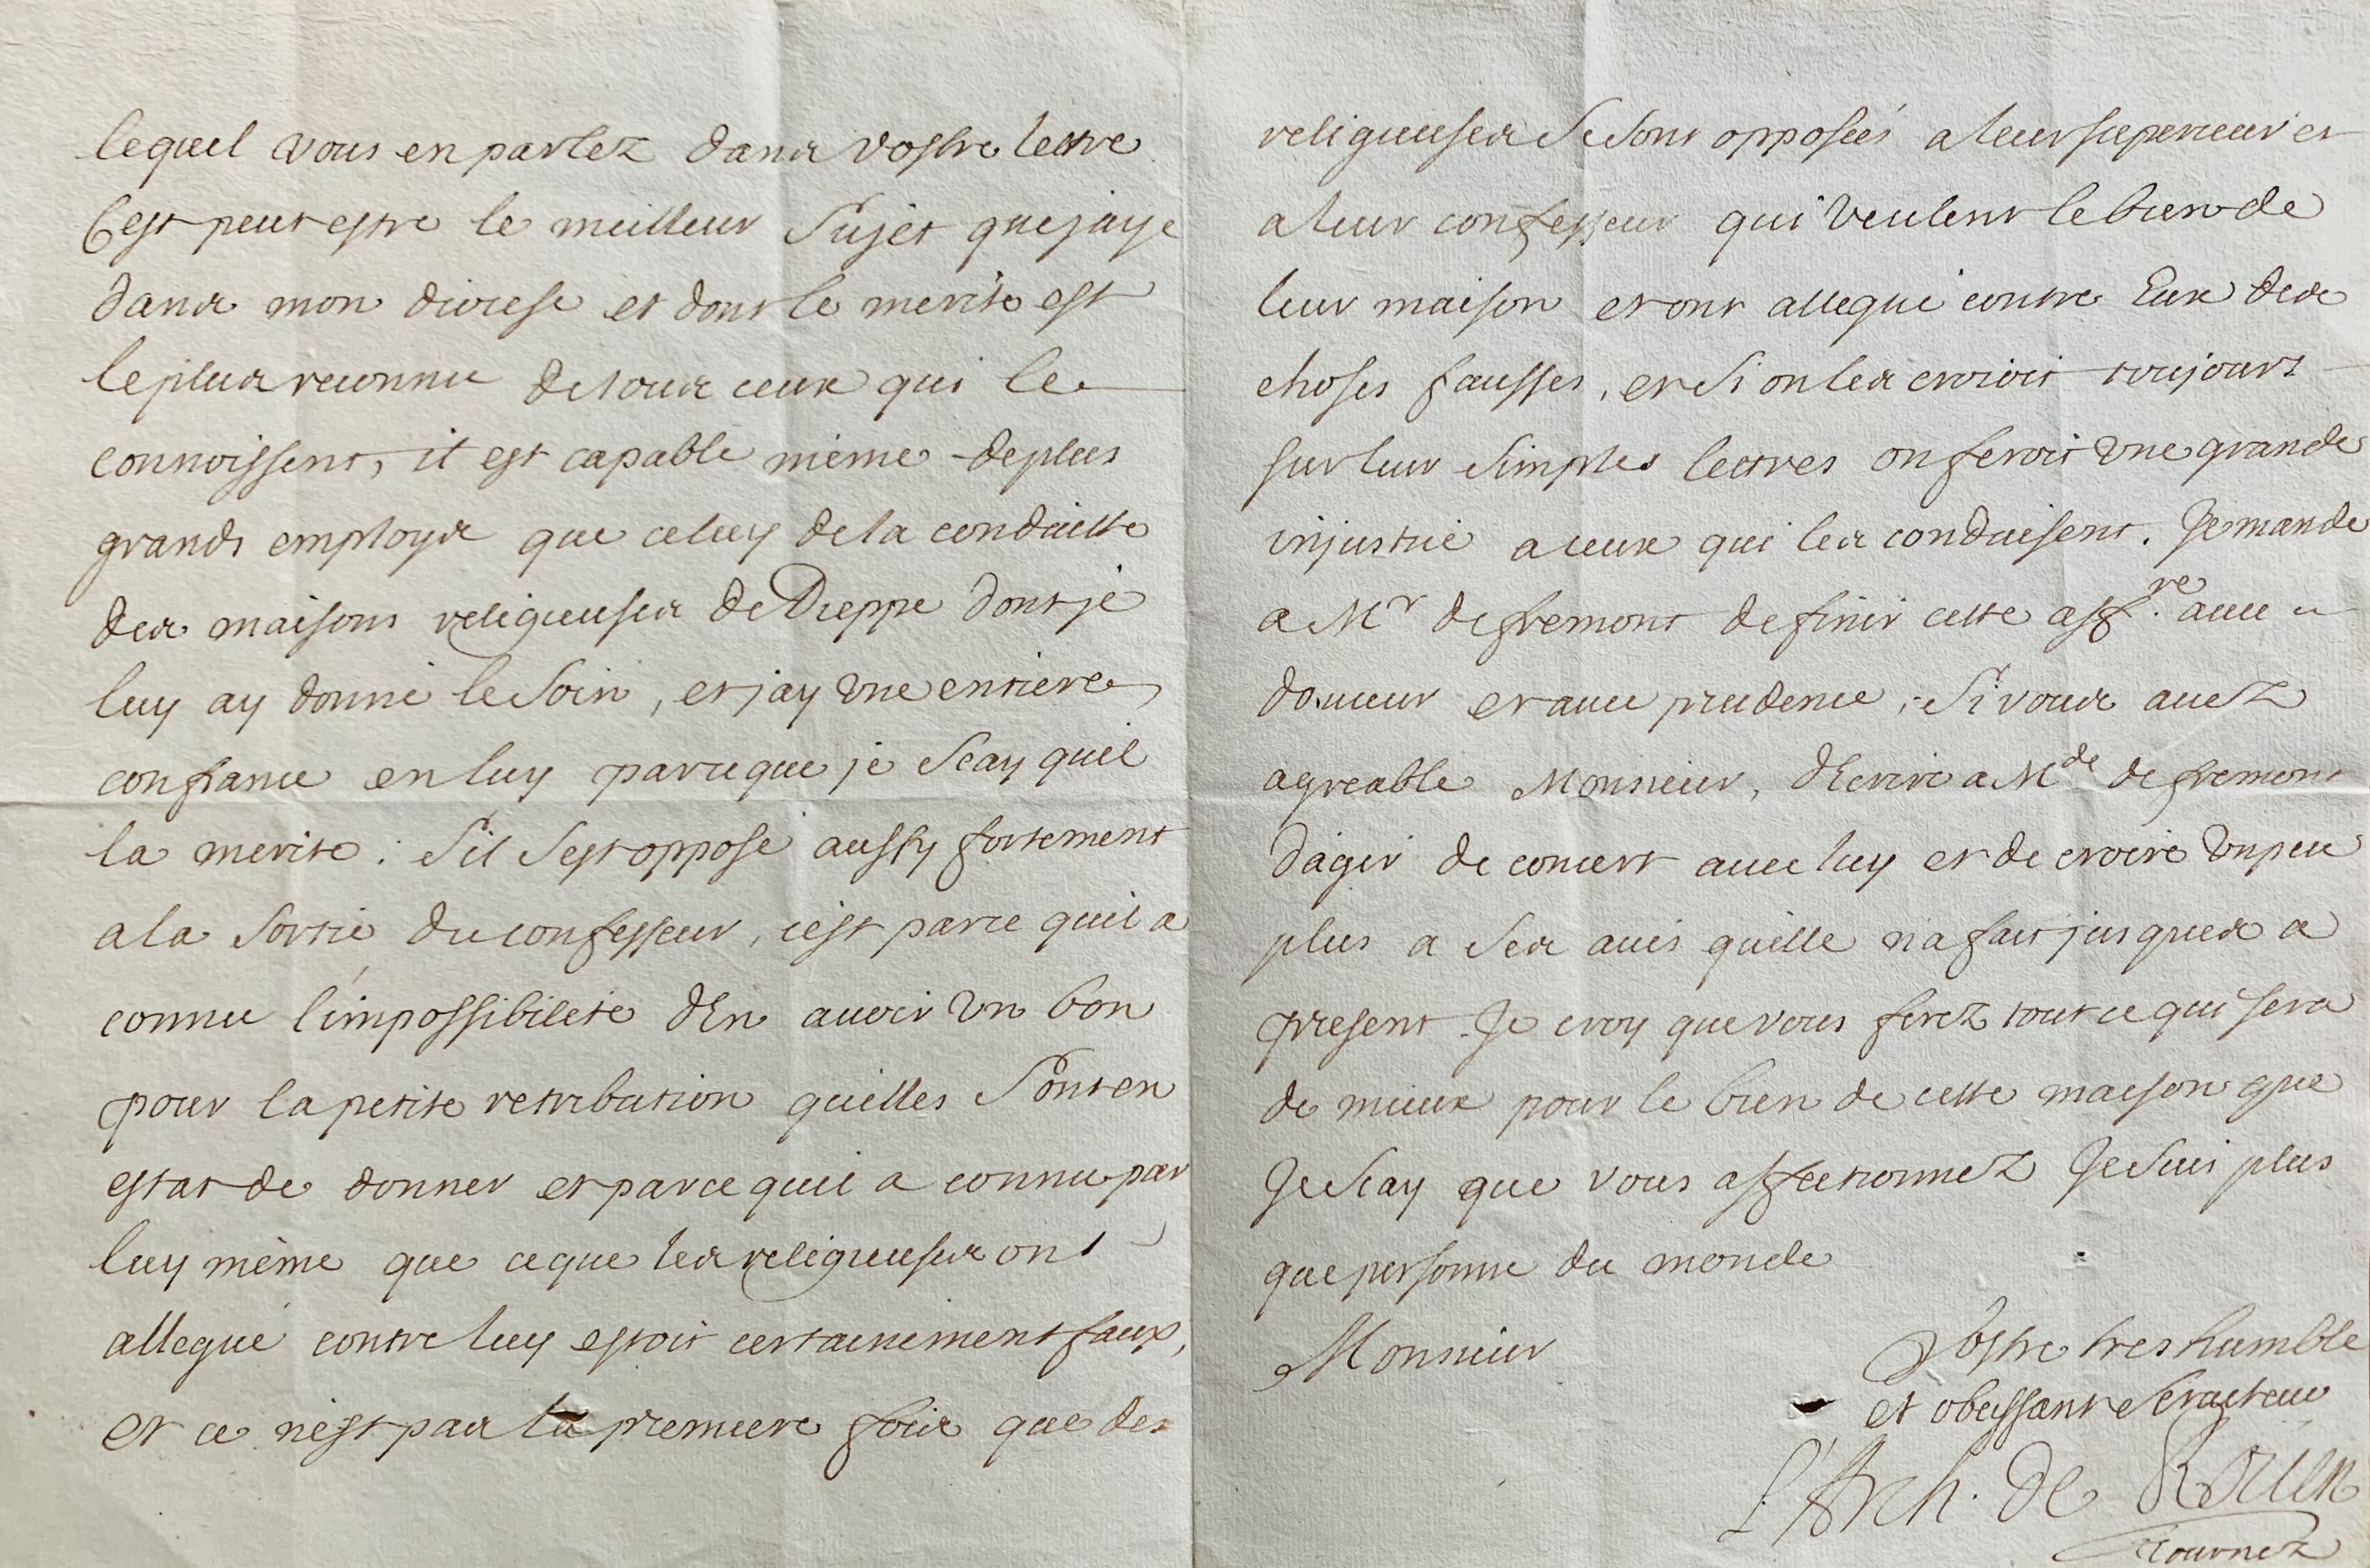 lequel vous en parlez dans vostre lettre
C'est peut estre le meilleur Sujet que jaye
dans mon diocese et dont le merite est
le plus reconnu de tous ceux qui le
connoissent, il est capable même de plus
grands employs que celuy de la conduitte
des maisons religieuses de Dieppe dont je
luy ay donné le Soin, et j'ay une entiere
confiance en luy parceque je Scay quil
la merite : Sil Sest opposé aussy fortement
a la Sortie du confesseur, cest parce quil a
connu l'impossibilité dEn avoir un bon
pour la petite retribution quelles Sont en
estat de donner et parce quil a connu par
luy même que ce que les religieuses ont
allegué contre luy estoit certainement faux,
et ce nest pas la premiere fois que des
religieuses Se Sont opposées a leur superieur et
a leur confesseur qui veulent le bien de
leur maison et ont allegué contre Eux des
choses fausses, et Si on les croioit toujours
sur leur Simples lettres on feroit une grande
injustice a ceux qui les conduisent. Je mande
a Mr de fremont de finir cette aff.re avec
douceur et avec prudence, Si vous avez
agreable Monsieur, dEcrire a Mde de fremont
dagir de concert avec luy et de croire un peu
plus a Ses avis quelle na fait jusques a
present. Je croy que vous ferez tout ce qui sera
de mieux pour le bien de cette maison que
Je Scay que vous affectionnez Je Suis plus
que personne du monde
Monsieur
Vostre tres humble
et obeissant Serviteur
L'Arch. de Roüen
tournez